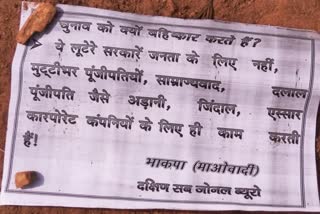 चुनाव को क्यों बहिष्कार करते हैं?
ये लूटेरे सरकारें जनता के लिए नहीं,
मुट्टीभर पूंजीपतियों, साम्राज्यवाद, दलाल
पूंजीपति जैसे अड़ानी, जिंदाल, एस्सार
कारपोरेट कंपनियों के लिए ही काम करती
हैं!
भाकपा (माओवादी)
दक्षिण सब जोनल ब्यूरो